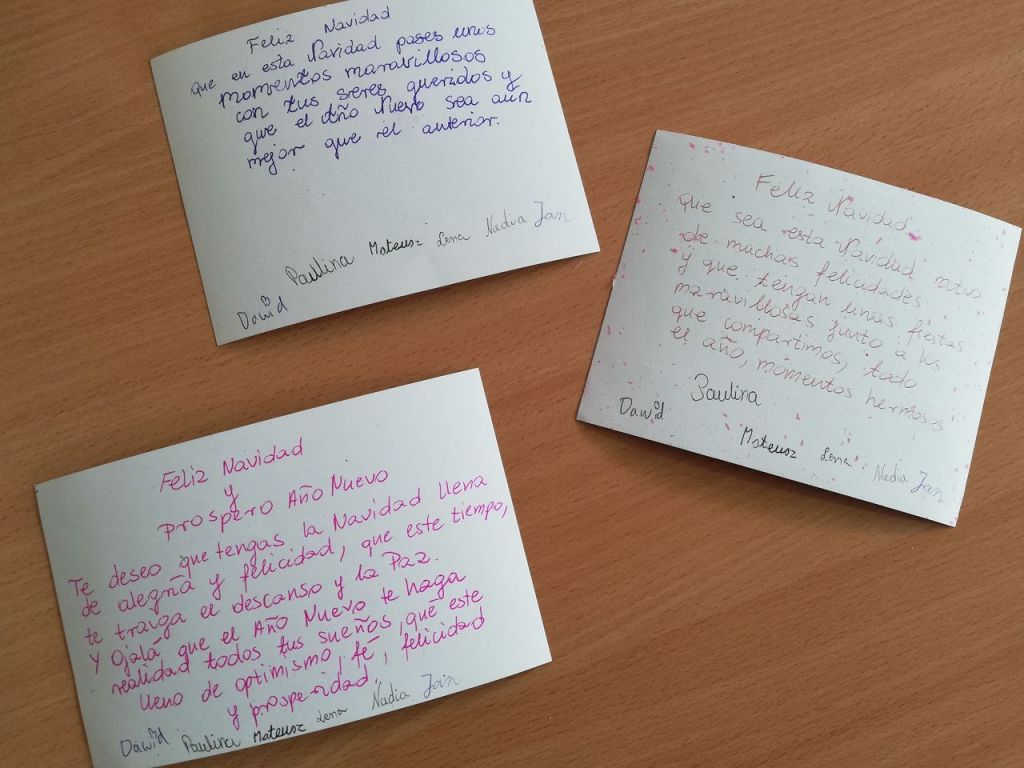 Feliz Navidad
que en esta Navidad pases unos
momentos maravillosos
con tus seres queridos y
que el Año Nuevo sea aún
mejor que el anterior.
Paulina Mateusz Lena Nadia Jan
Dawid
Feliz Navidad
que sea esta Navidad motivo
de muchas felicidades
y que tengan unas fiestas
maravillosas junto a los
que compartimos, todo
el año, momentos hermosos
Dawid Paulina
Mateusz Lena Nadia Jan
Feliz Navidad
y
prospero Año Nuevo
Te deseo que tengas la Navidad llena
de alegría y felicidad, que este tiempo,
te traiga el descanso y la Paz.
y Ojalá que el Año Nuevo te haga
realidad todos tus sueños, que este
lleno de optimismo, fé, felicidad
y prosperidad.
Dawid Paulina Mateusz Lena Nadia Jan